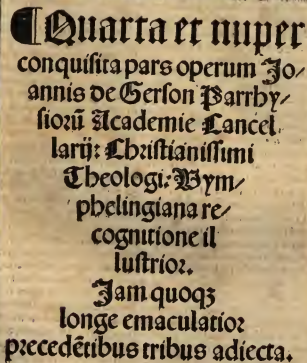 ¶Quarta et nuper
conquisita pars operum Jo/
annis de Gerson Parrhy/
siorū Academie Cancel
larij: Christianissimi
Theologi: Wym/
phelingiana re/
cognitione il
lustrior.
Jam quoqꝫ
longe emaculatior
precedētibus tribus adiecta.